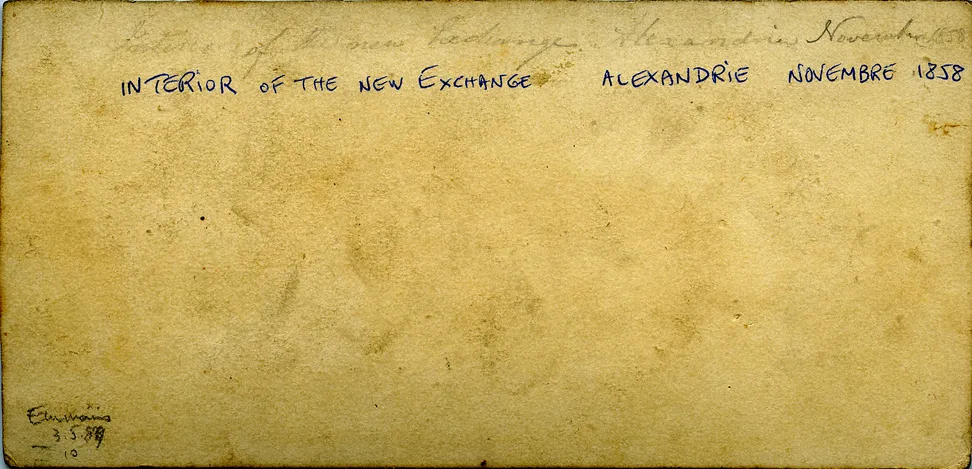 Interior of the new Exchange. Alexandria November 1858
INTERIOR OF THE NEW EXCHANGE ALEXANDRIE NOVEMBRE 1858
3.5.89
10